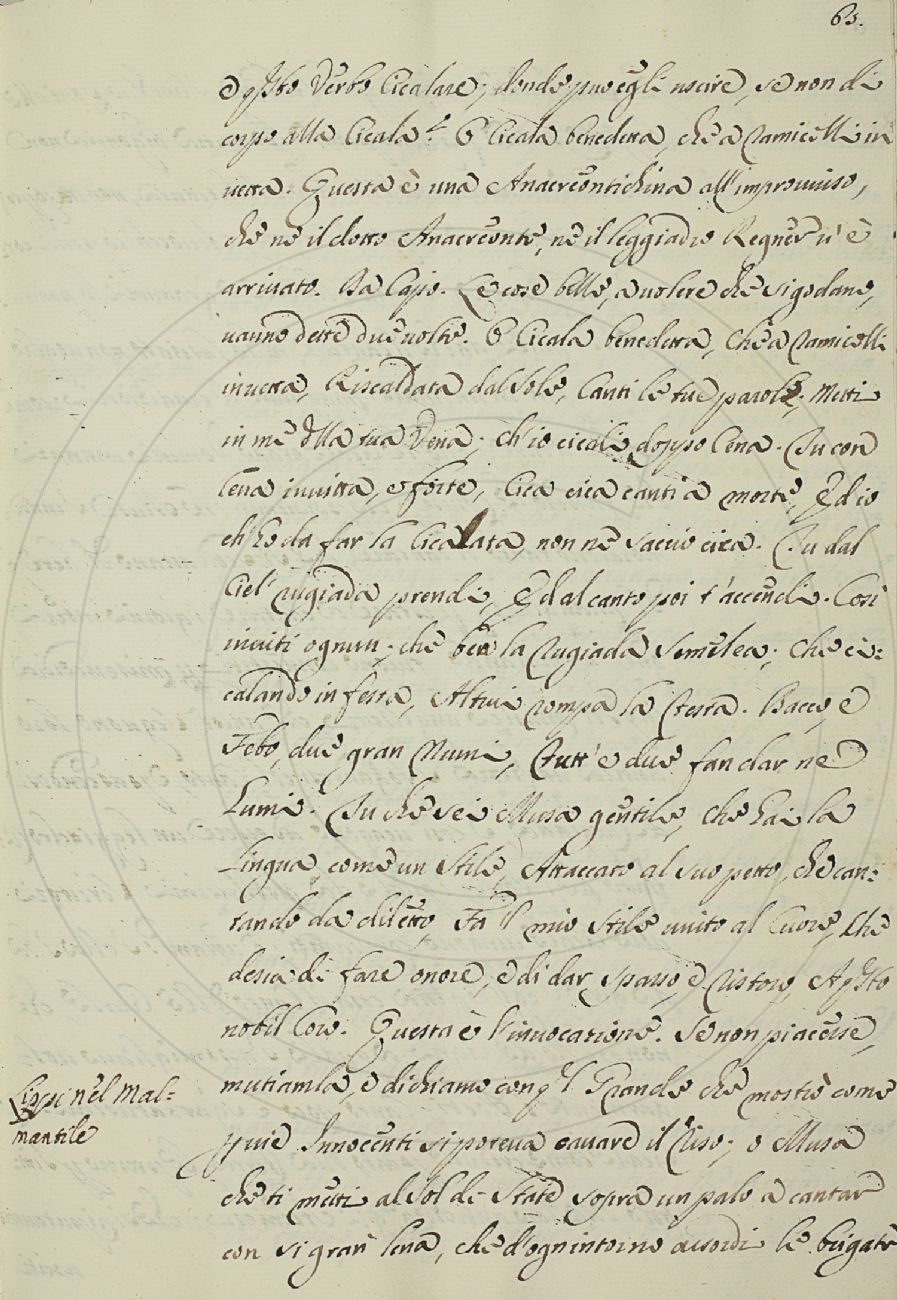 65.
e q.sto Verbo Cicalare; donde può egli uscire, se non di
corpo alla Cicala? O Cicala benedetta, che a' ramicelli in
vetta. Questa è una Anacreontichina all'improvviso,
che nè il dotto Anacreonte, nè il leggiadro Regner vi è
arrivato. Da Capo. Le cose belle, a volere che si godano,
vanno dette due volte. O Cicala benedetta, Che a' ramicelli
in vetta, Riscaldata dal Sole, Canti le tue parole; Metti
in me d'lla tua Vena; ch'io cicali doppo Cena. Tu con
lena invitta, e forte, Cica cica canti a morte, Ed io
ch'ho da far la Cicalata, non ne saccio cica. Tu dal
Ciel rugiada prendi, Ed al canto poi t'accendi. Così
inviti ognun; che bea la rugiada Semelea; Che ci=
calando in festa, Altrui rompa la testa. Bacco, e
Febo, due gran Numi, Tutt' e due fan dar ne'
Lumi. Tu che sei Musa gentile, Che hai la
Lingua, come un Stile, Attaccato al suo petto, che can=
tando dà diletto, Fà 'l mio Stile unito al Cuore, Che
desia di fare onore, e di dar spasso, e ristoro, A q.sto
nobil Coro. Questa è l'invocazione. Se non piacesse,
mutiamla, e dichiamo con q.l Grande che mostrò come
Lippi nel Mal=
mantile
puri Innocenti si poteva cavare il riso; o Musa
che ti metti al Sol di State sopra un palo a cantar
con sì gran lena, che d'ogn intorno assordi le brigate